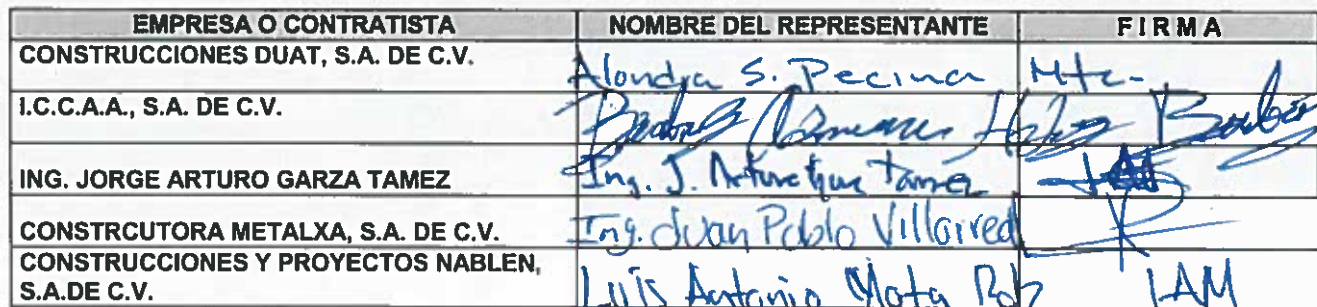 EMPRESA O CONTRATISTA NOMBRE DEL REPRESENTANTE F I R M A
CONSTRUCCIONES DUAT, S.A. DE C.V. Alondra S. Pecina Mtz-
I.C.C.A.A., S.A. DE C.V.
ING. JORGE ARTURO GARZA TAMEZ Ing. J. Arturo Tamez
CONSTRCUTORA METALXA, S.A. DE C.V. Ing. Juan Pablo Villarreal
CONSTRUCCIONES Y PROYECTOS NABLEN,
S.A.DE C.V. Luis Antonio Mota LAM